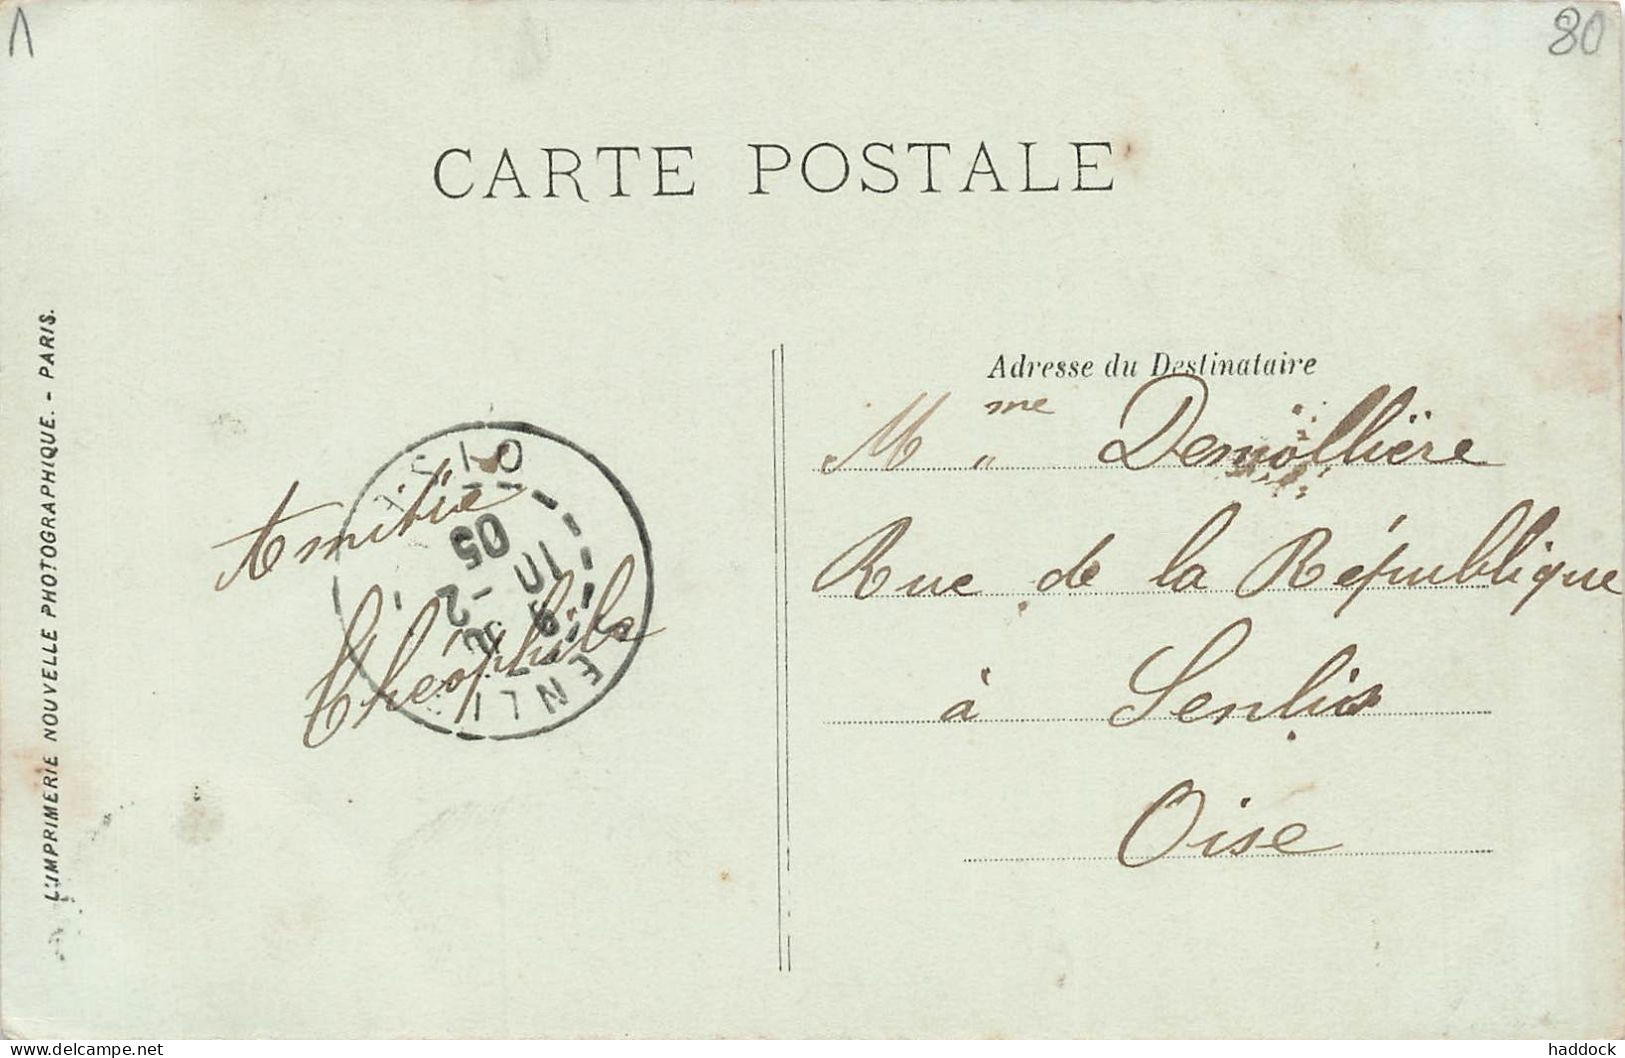 80
CARTE POSTALE
L'IMPRIMERIE NOUVELLE PHOTOGRAPHIQUE. - PARIS.
Adresse du Destinataire
Mme Demollière
Rue de la République
à Senlis
Oise
Amitié
Théophile
OISE
05
2
SENLIS
delcampe.net
haddock